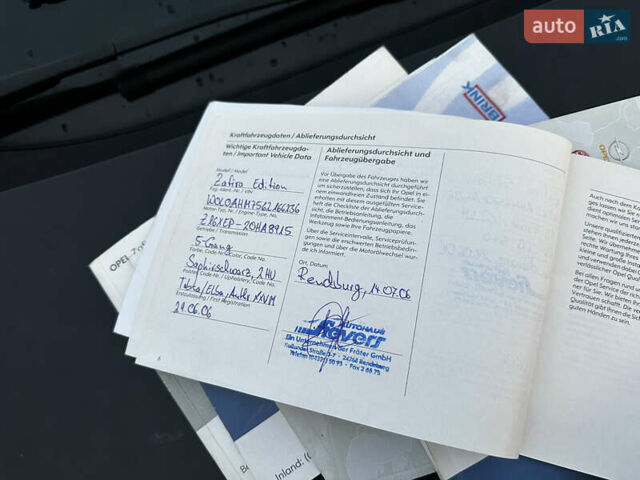 auto RIA.com
BRINK
OPEL
Kraftfahrzeugdaten / Ablieferungsdurchsicht
Wichtige Kraftfahrzeugda-
ten / Important Vehicle Data
Modell / Model
Zafira Edition
Fzg.-Ident.-Nr. / VIN
W0L0AHM7562166236
Motor-Typ, Nr. / Engine-Type, No.
Z16XEP-20HA8915
Getriebe / Transmission
5-Gang
Farbe, Code-Nr./Color, Code No.
Saphirschwarz, 2HU
Polster, Code-Nr. / Upholstery, Code No.
Erstzulassung / First Registration
29.06.06
Ablieferungsdurchsicht und
Fahrzeugübergabe
Vor Übergabe des Fahrzeuges haben wir
eine Ablieferungsdurchsicht durchgeführt
um sicherzustellen, dass sich Ihr Opel in ei-
nem einwandfreien Zustand befindet. Sie
erhalten mit diesem ausgefüllten Service-
heft die Checkliste der Ablieferungsdurch-
sicht, die Betriebsanleitung, die
Infotainment-Bedienungsanleitung, das
Werkzeug sowie Ihre Fahrzeugpapiere.
Über die Serviceintervalle, Serviceprüfun-
gen sowie die erschwerten Betriebsbedin-
gungen und über die Motorölwechsel wur-
de ich informiert.
Ort, Datum:
Rendsburg, 14.07.06
AUTOHAUS
Ein Unternehmen der Fräter GmbH
24768 Rendsburg
Auch nach dem
dient optimalen Ser
machen wir uns star
Unsere qualifizierten
stehen Ihnen jederze
Seite. Wir übernehm
Wartung Ihres
kleine und große Insta
und verwenden dabei
verlässlicher Opel Qualit
Bei allen Fragen rund u
der Opel Service der ric
ner für Sie. Wir bieten Ih
Vertrauen schafft. Die ve
Qualität gibt Ihnen die Sich
guten Händen zu sein.
Inland: (